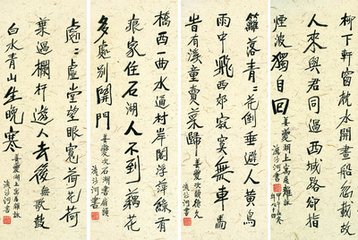 柳下軒窗枕水開画船忽載故
人來與君同過西城路却指
煙波獨自回
姜夔湖上寓居雜詠
籬落青〻花倒垂避人黃鳥
雨中飛西郊寂寞無車馬
旹有溪童賣菜歸
橋西一曲水通村岸閣浮萍綠有
痕家住石湖人不到藕花
多處別開門
姜夔次石湖書扇韻
處〻虛堂望眼寬荷花荷
葉過欄杆遊人去後無歌鼓
白水青山生晚寒
姜夔湖上寓居雜詠